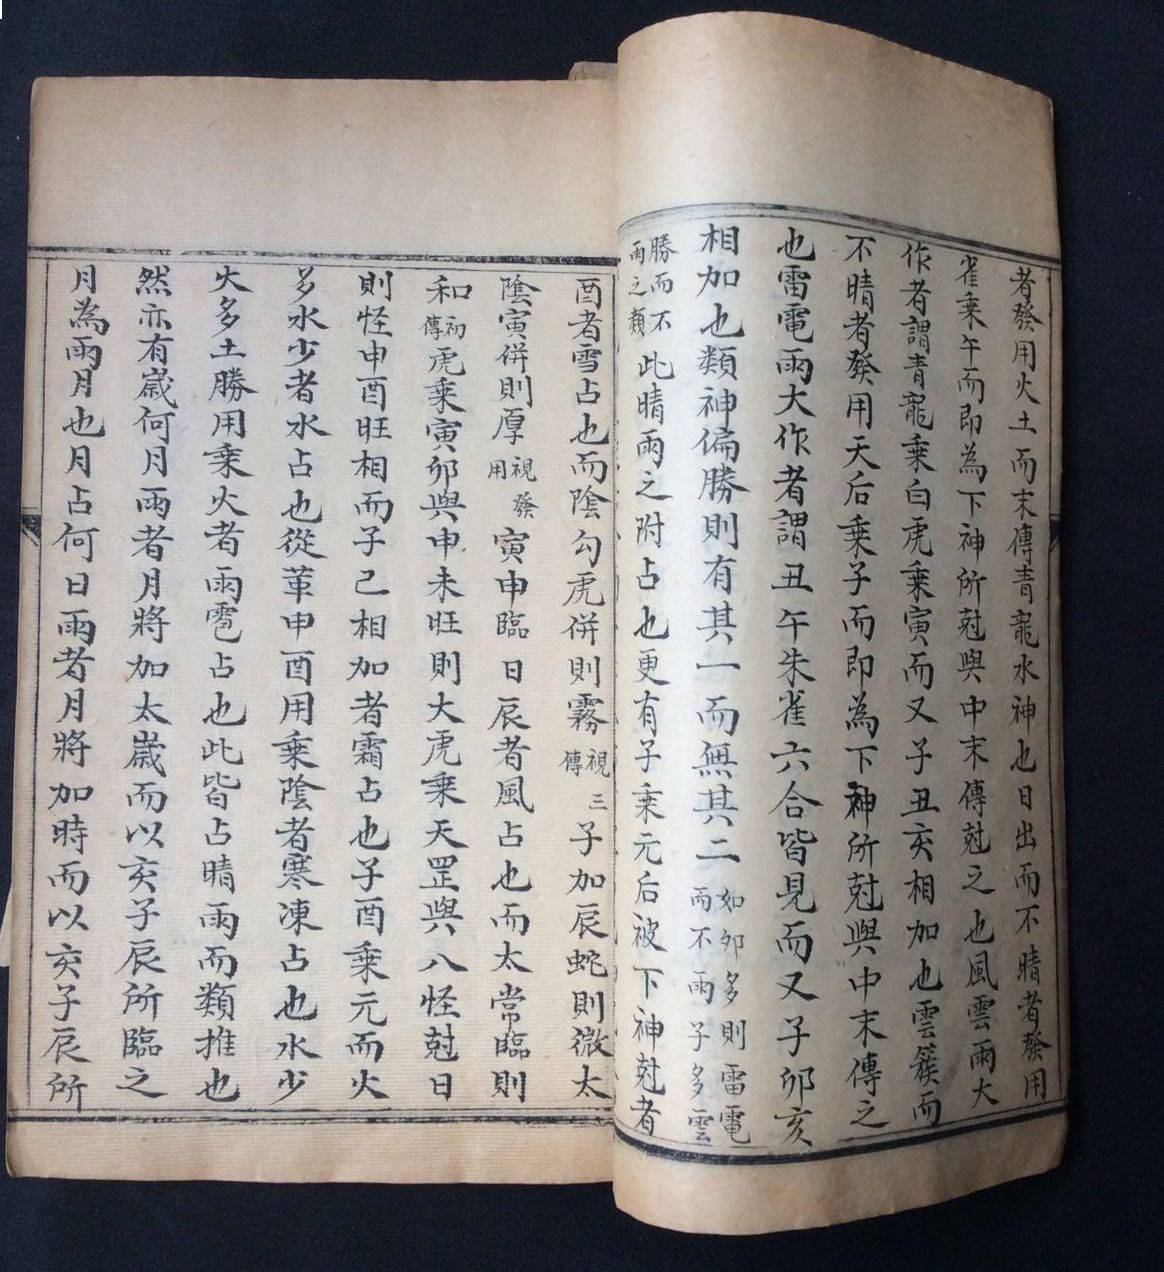 者發用火土而末傳青龍水神也日出而不晴者發用
雀乘午而即為下神所尅與中末傳尅之也風雲雨大
作者謂青龍乘白虎乘寅而又子丑亥相加也雲簇而
不晴者發用天后乘子而即為下神所尅與中末傳之
也雷電雨大作者謂丑午朱雀六合皆見而又子卯亥
相加也類神偏勝則有其一而無其二如卯多則雷電而不雨子多雲
勝而不雨之類此晴雨之附占也更有子乘元后被下神尅者
酉者雪占也而陰勾虎併則霧視三傳子加辰蛇則微太
陰寅併則厚視發用寅申臨日辰者風占也而太常臨則
和初傳虎乘寅卯與申未旺則大虎乘天罡與八怪尅日
則怪申酉旺相而子己相加者霜占也子酉乘元而火
多水少者水占也從革申酉用乘陰者寒凍占也水少
火多土勝用乘火者雨雹占也此皆占晴雨而類推也
然亦有歲何月雨者月將加太歲而以亥子辰所臨之
月為雨月也月占何日雨者月將加時而以亥子辰所